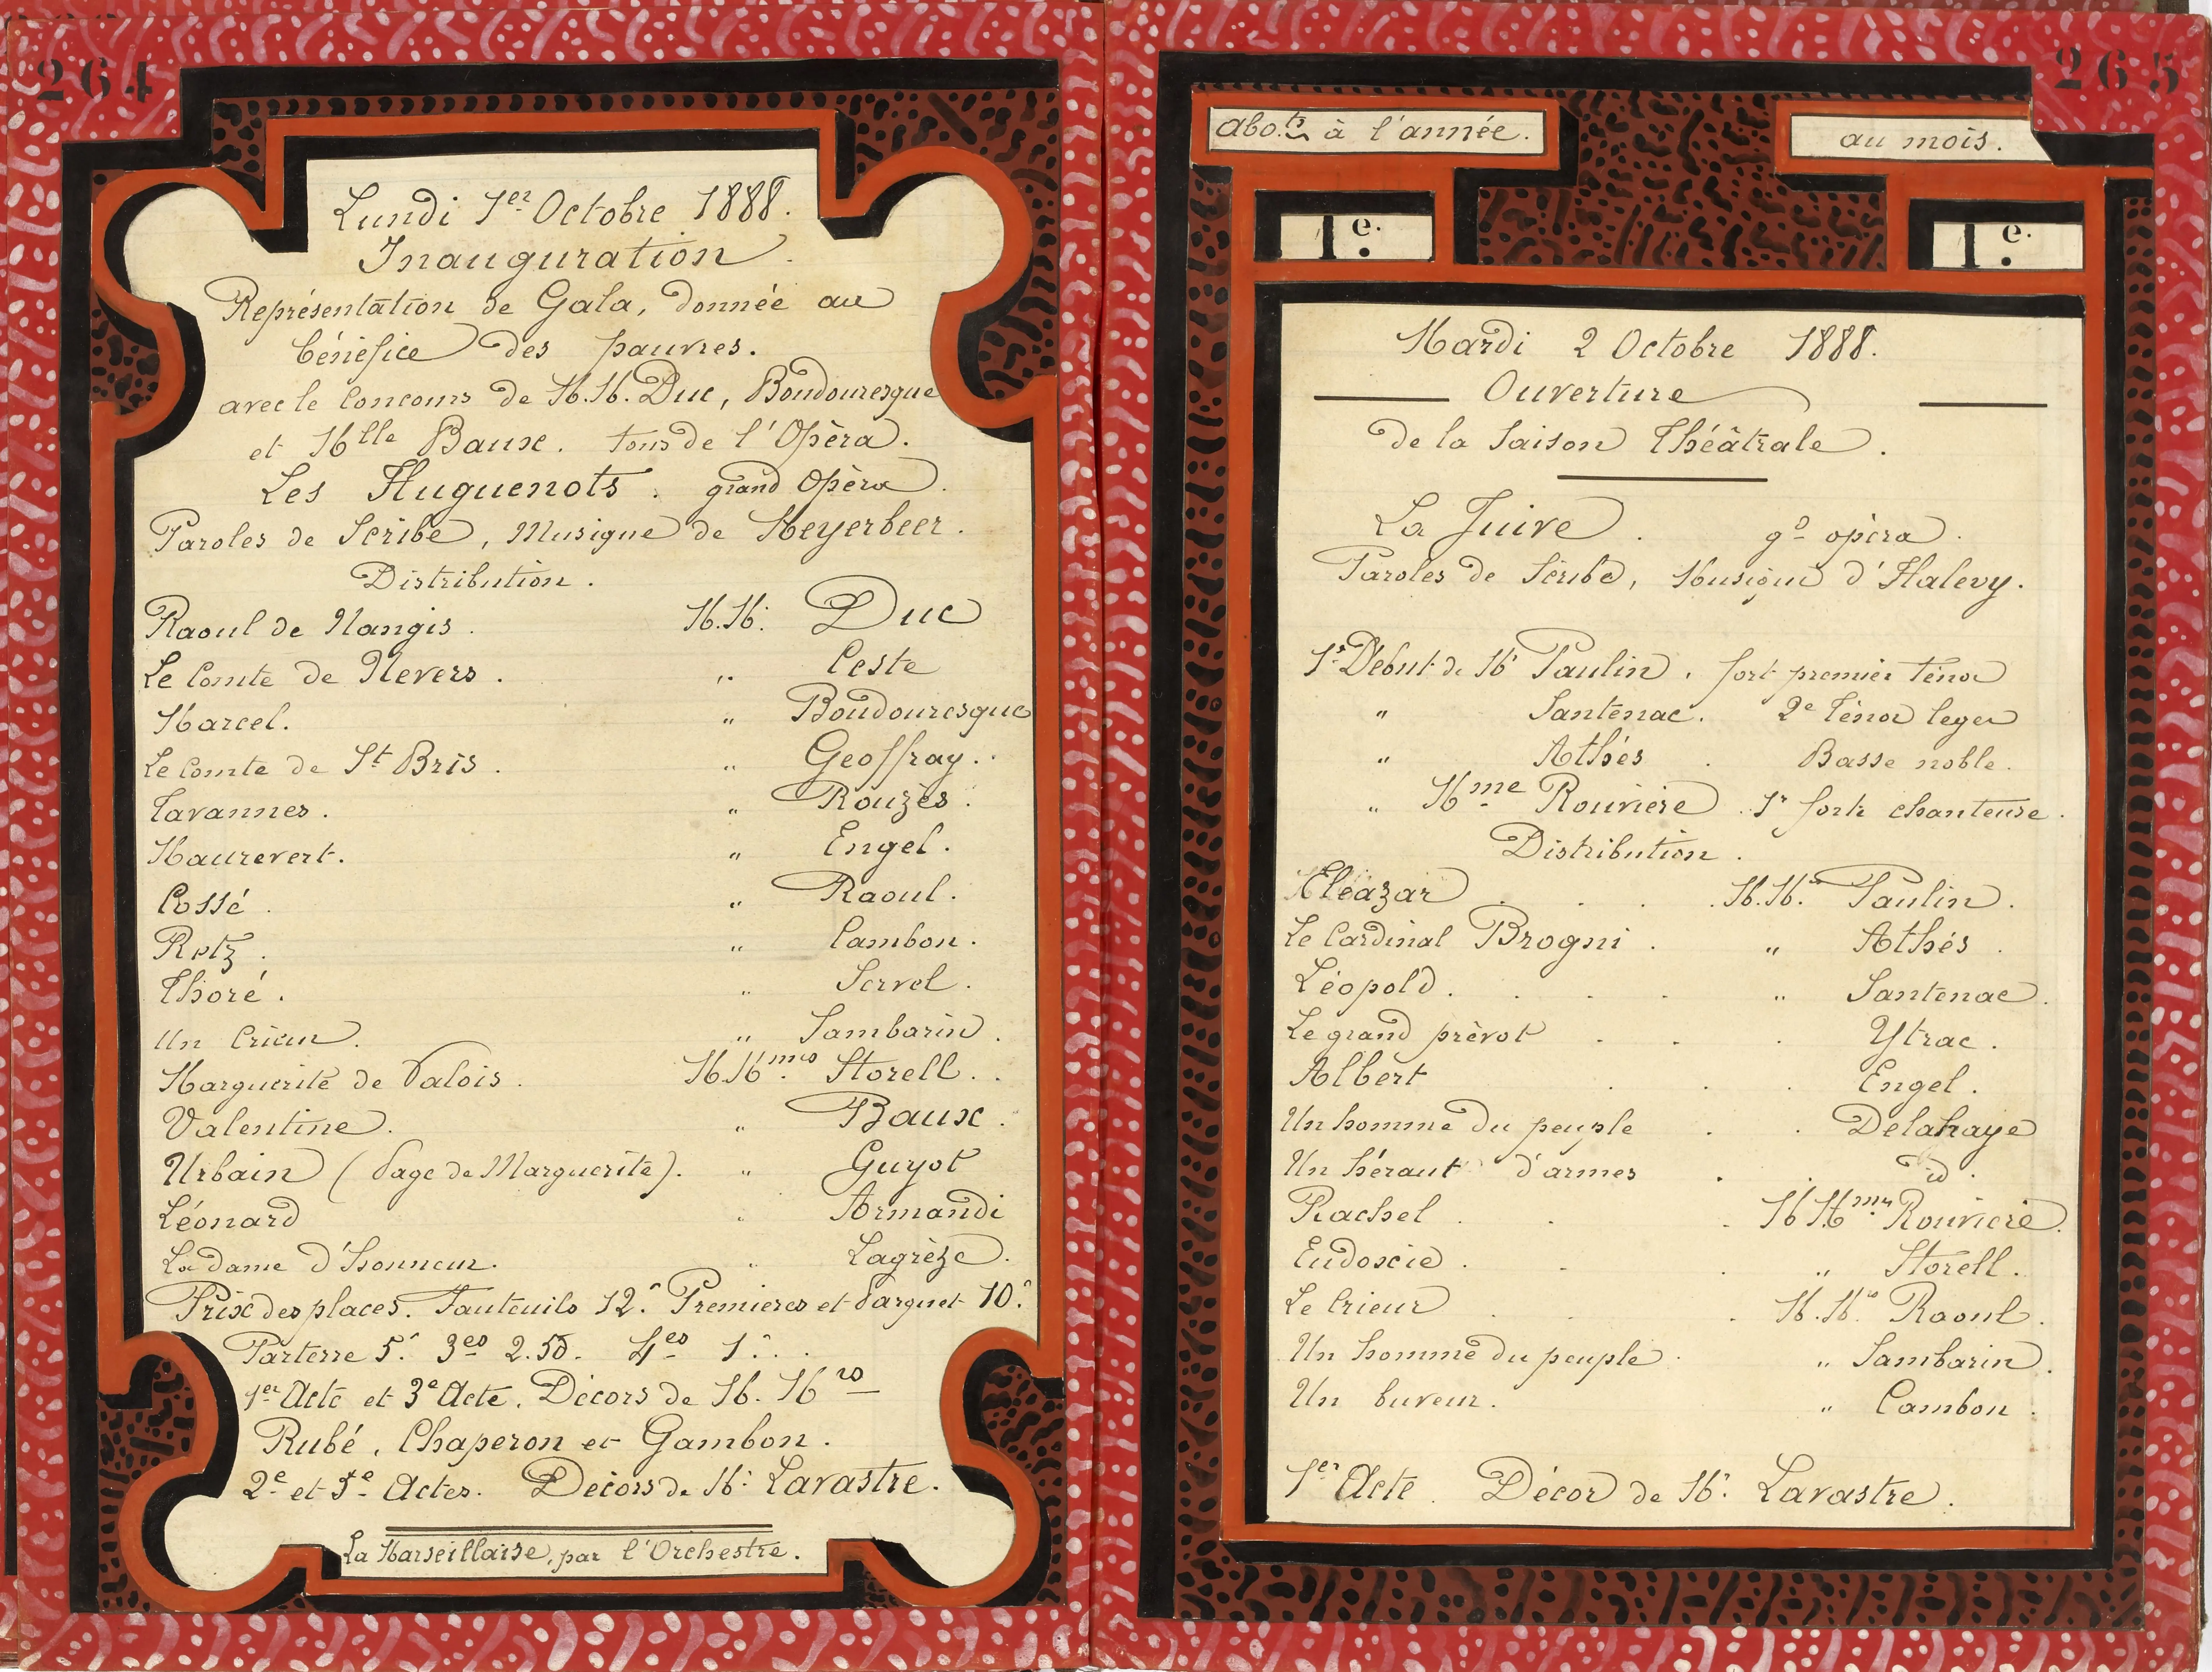 264
Lundi 1er Octobre 1888.
Inauguration.
Représentation de Gala, donnée au
bénéfice des pauvres.
avec le Concours de M.M. Duc, Boudouresque
et Mlle Baux. tous de l'Opéra.
Les Huguenots. grand Opéra.
Paroles de Scribe, Musique de Meyerbeer.
Distribution.
Raoul de Nangis. M.M. Duc
Le Comte de Nevers. " Ceste
Marcel. " Boudouresque
Le Comte de St Bris. " Geoffray.
Tavannes. " Rouzès.
Maurevert. " Engel.
Cossé. " Raoul.
Retz. " Cambon.
Thoré. " Servel.
Un Crieur. " Sambarin.
Marguerite de Valois. M.Mmes Storell.
Valentine. " Baux.
Urbain (Page de Marguerite). " Guyot
Léonard " Armandi
La dame d'honneur. " Lagrèze.
Prix des places. Fauteuils 12f Premieres et Parquet 10f
Parterre 5f 3es 2.50. 4es 1f.
1er Acte et 3e Acte. Décors de M. Mrs
Rubé, Chaperon et Gambon.
2e et 5e Actes. Décors de M. Lavastre.
La Marseillaise, par l'Orchestre.
265
abo.ts à l'année. au mois.
1e. 1e.
Mardi 2 Octobre 1888.
Ouverture
de la Saison Théâtrale.
La Juive. gd opéra.
Paroles de Scribe, Musique d'Halevy.
1r Début de Mr Paulin. fort premier ténor
" Santenac. 2e Ténor leger
" Athés. Basse noble.
" Mme Rouviere. 1r forte chanteuse.
Distribution.
Eléazar. M.M.rs Paulin.
Le Cardinal Brogni. " Athés.
Léopold. " Santenac.
Le grand prévot. Ytrac.
Albert. Engel.
Un homme du peuple. Delahaye
Un héraut d'armes. id.
Rachel. M Mmes Rouviere.
Eudoxie. " Storell.
Le Crieur. M.Mrs Raoul.
Un homme du peuple. " Sambarin.
Un buveur. " Cambon.
1er Acte. Décor de Mr Lavastre.